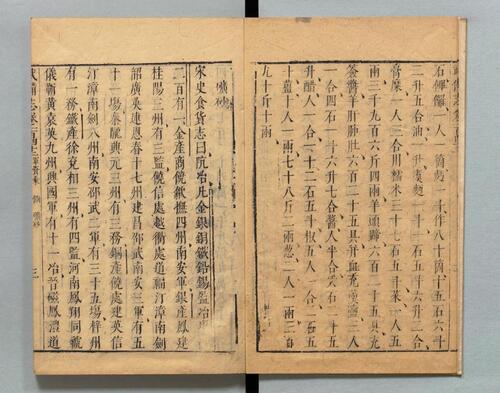 石饆饠一人一箇麪一斗作八十箇十五石六斗
二升五合油一升麦麪一十一石五斗六升二合
人三合用糯米三十七石五斗米一人五
南三千九百六斤四兩羊頭蹄六百一十五具充
羊肝肺肚六百二十五具
一合四石一斗六升七合醬人半合
升醋人一合一十二石五斗椒五人一合一石五
十薑人一兩七十八斤二兩葱三人一兩三百
九十斤十兩
礦砂
宋史食貨志曰阬冶凡金銀銅鐵鉛錫監冶
二百有一金產商饒歙撫四州南安軍銀產鳳建
桂陽三州有三監饒信處越衢處道福汀漳南劍
韶廣英連恩春十七州建昌邵武南安三軍有五
十一場秦隴興元三州有三務銅產饒處建英信
汀漳南劍八州南安邵武二軍有三十五場梓州
有一務鐵產徐兗相三州有四監河南鳳翔同虢
儀蘄黃袁英九州興國軍有十二冶晉磁鳳澧道